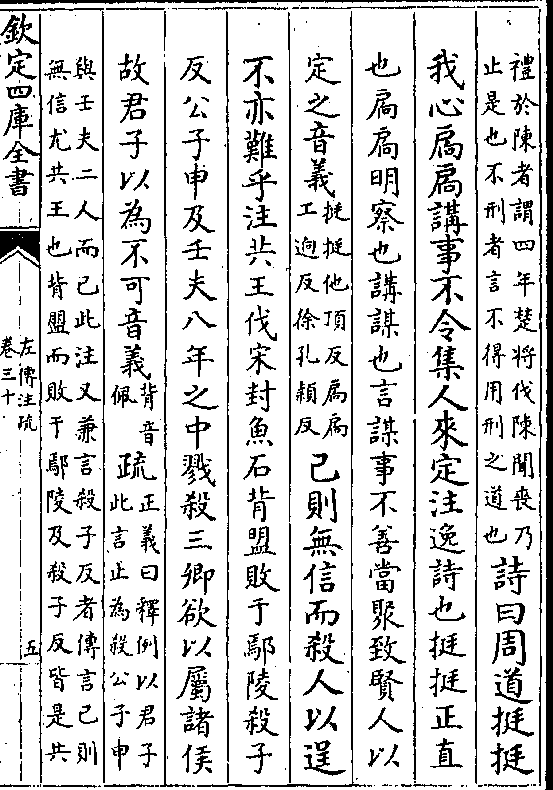 禮於陳者謂四年楚將伐陳聞喪乃
止是也不刑者言不得用刑之道也
詩曰周道挺挺
我心扃扃講事不令集人來定注逸詩也挺挺正直
也扃扃明察也講謀也言謀事不善當聚致賢人以
定之音義
挺挺他頂反扃扃
工迥反徐孔熲反
己則無信而殺人以逞
不亦難乎注共王伐宋封魚石背盟敗于鄢陵殺子
反公子申及壬夫八年之中戮殺三卿欲以屬諸侯
故君子以為不可音義
背音
佩
疏
正義曰釋例以君子
此言止為殺公子申
與壬夫二人而已此注又兼言殺子反者傳言己則
無信尤共王也背盟而敗于鄢陵及殺子反皆是共
欽定四庫全書
左傳注疏
卷三十
五